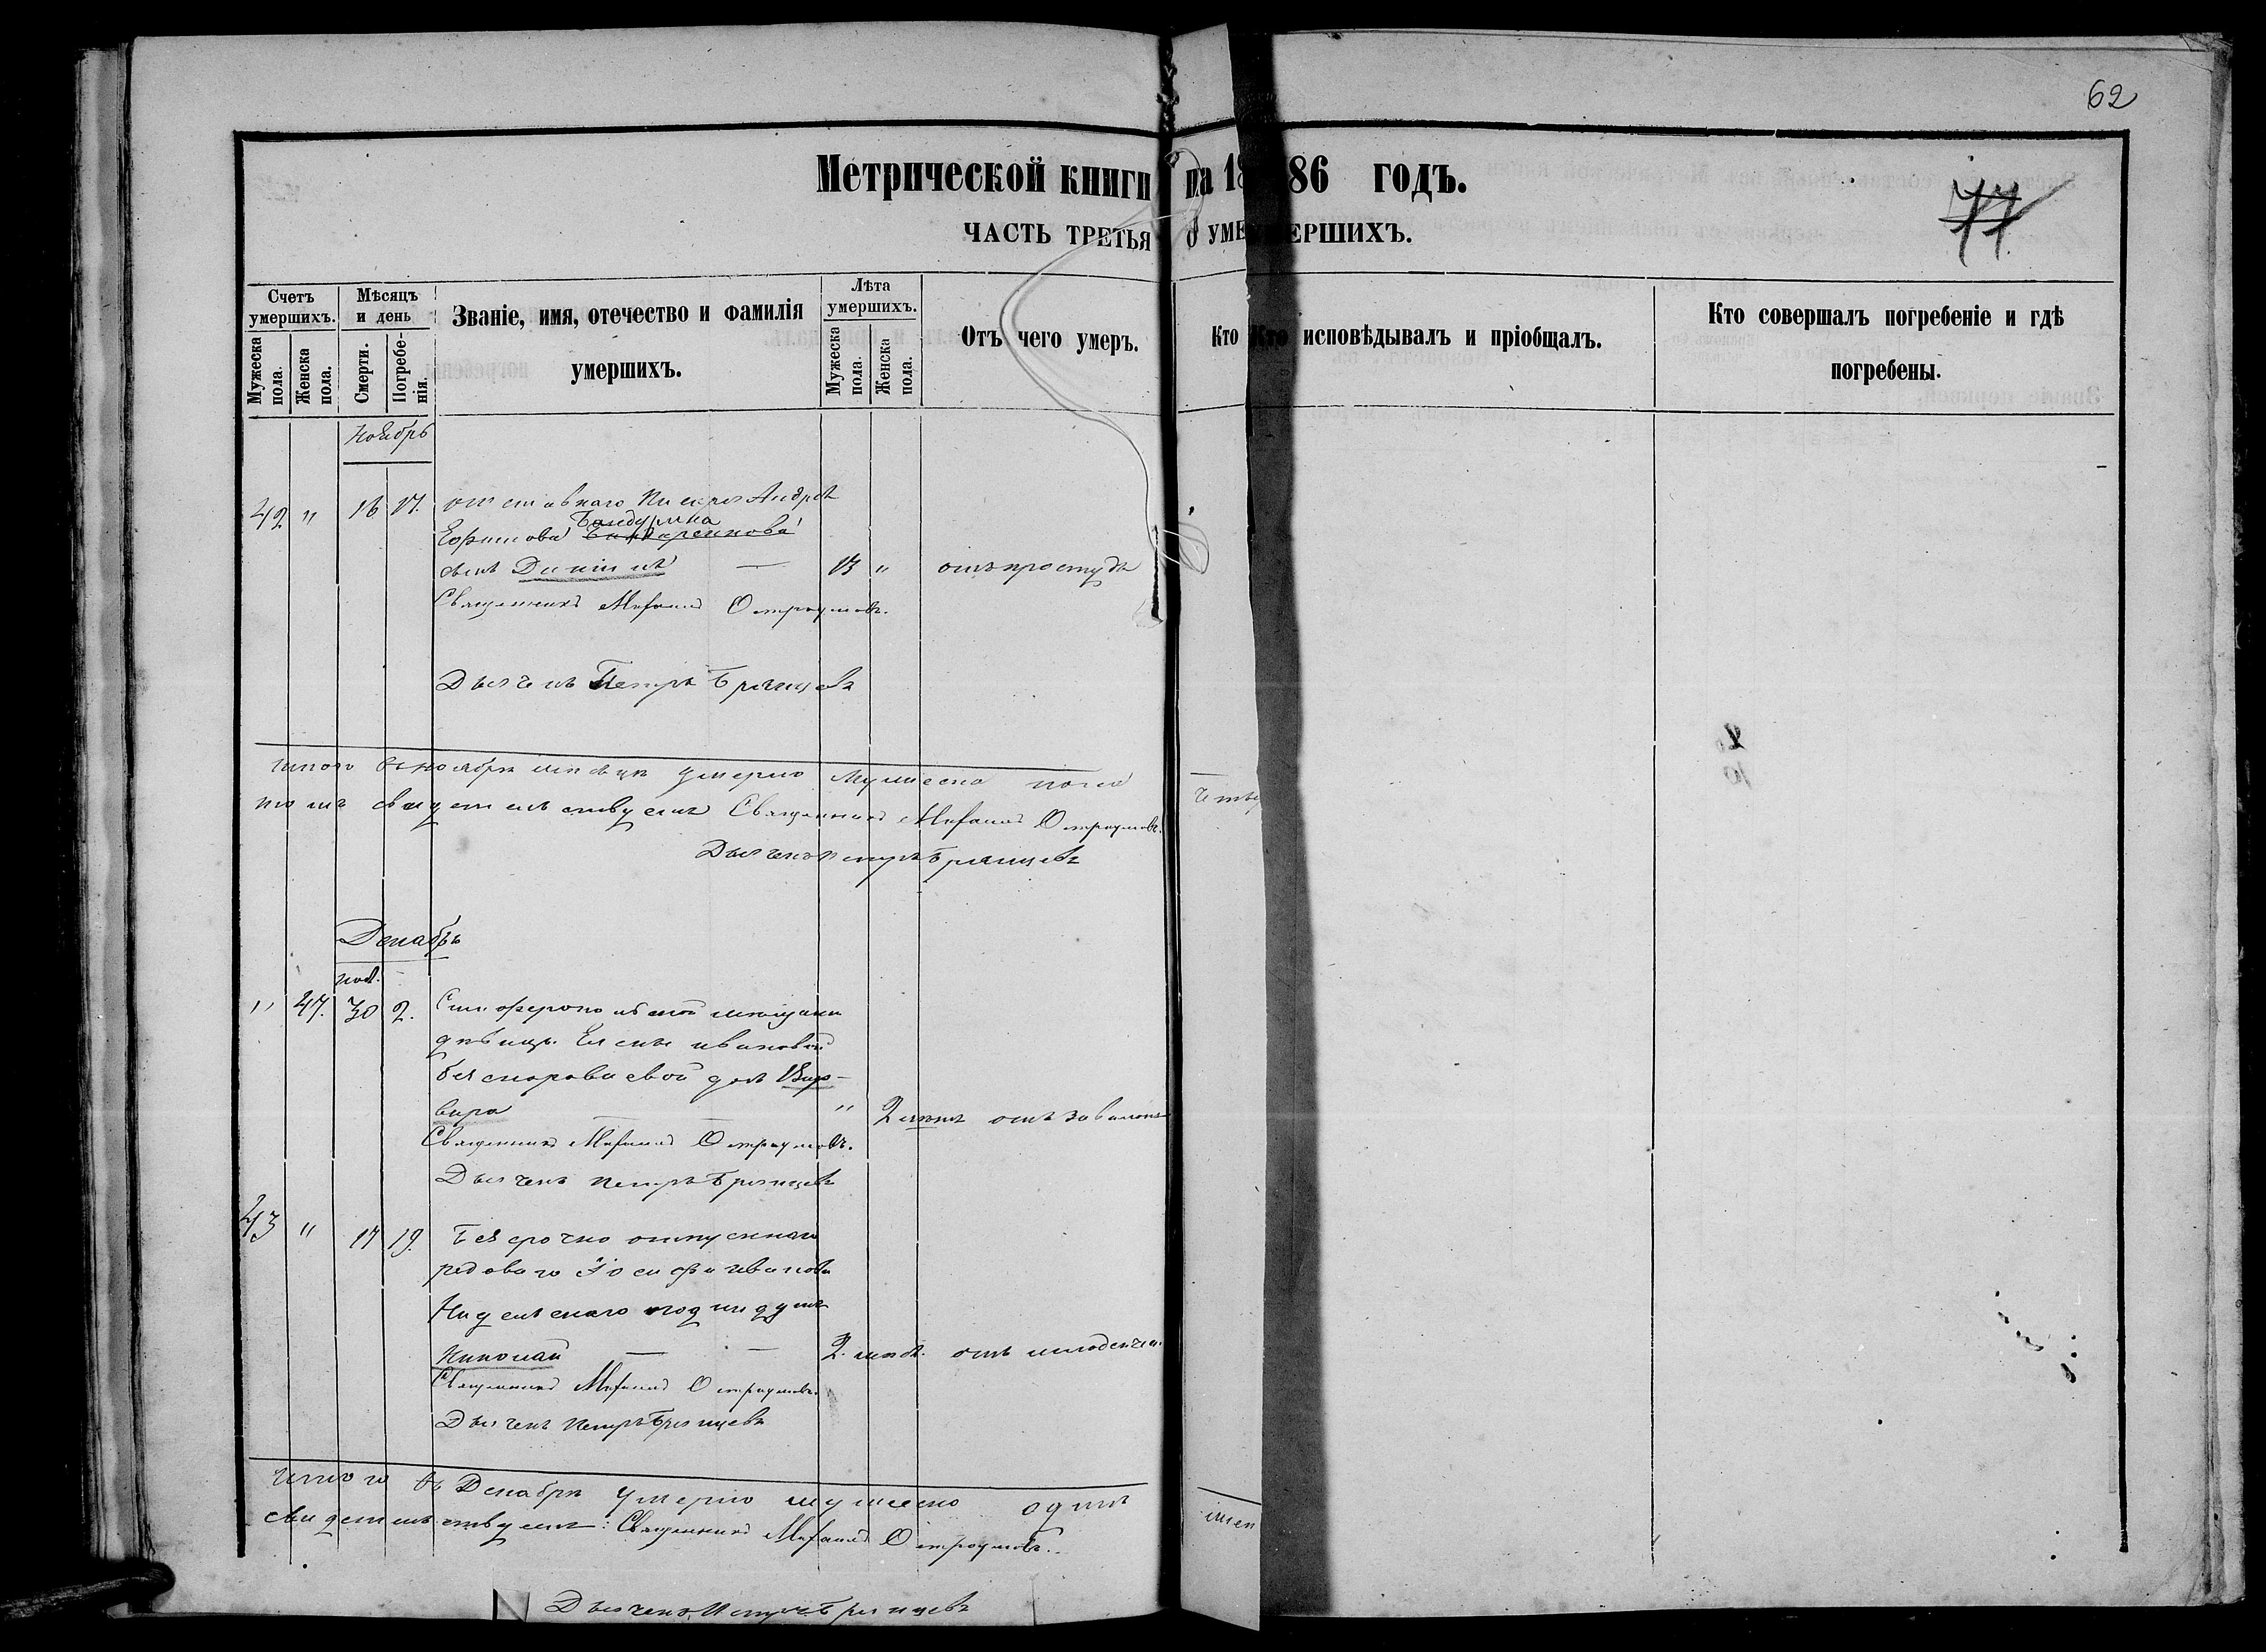 62
Метрической книги на 18 86 годъ.
77
ЧАСТЬ ТРЕТЬЯ О УМЕ ЕРШИХЪ.
Счетъ умершихъ.
Мужеска пола.
Женска пола.
Мѣсяцъ и день
Смерти.
Погребенія.
Званіе, имя, отечество и фамилія
умершихъ.
Лѣта умершихъ.
Мужеска пола.
Женска пола.
Отъ чего умеръ.
Кто Кто исповѣдывалъ и пріобщалъ.
Кто совершалъ погребеніе и гдѣ
погребены.
Ноябрь
42 " 16 17. отставнаго Писаря Андрея
Бандурина
Ефимова Бондаренкова
сынъ Даніилъ — 13 " отъ простуды
Священникъ Михаилъ Остроумовъ.
Дьячекъ Петръ Брянцевъ
Итого въ ноябрѣ мѣсяцѣ умерло мужеска пола
томъ свидетельствуемъ Священникъ Михаилъ Остроумовъ.
Дьячекъ Петръ Брянцевъ
Декабрь
нояб.
" 47. 30 2. Симферопольской мѣщанки
дѣвицы Елены Ивановой
Безкоровиевой дочь Вар-
вара " 2 лѣтъ отъ
Священникъ Михаилъ Остроумовъ.
Дьячекъ Петръ Брянцевъ
43 " 17 19. Безсрочно отпускнаго
рядоваго Іосифа Иванова
Николай — — 2. отъ младенч.
Священникъ Михаилъ Остроумовъ.
Дьячекъ Петръ Брянцевъ
Итого въ Декабрѣ умерло мужеска одинъ
свидетельствуемъ: Священникъ Михаилъ Остроумовъ.
Дьячекъ Петръ Брянцевъ